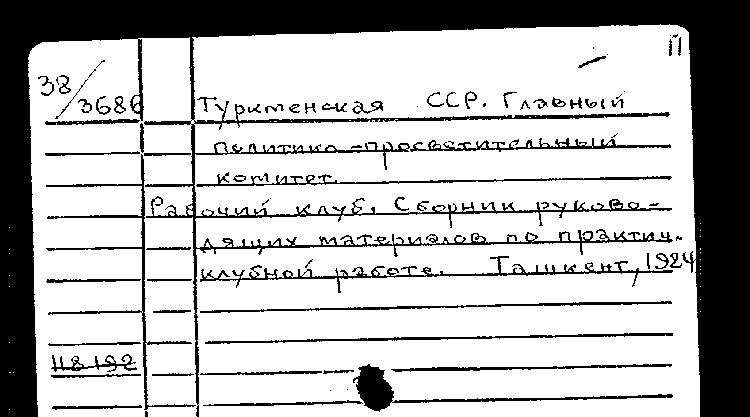 П
38/3686 Туркменская ССР. Главный
политико-просветительный
комитет.
Рабочий клуб. Сборник руково-
дящих материалов по практич.
клубной работе. Ташкент, 1924
118192